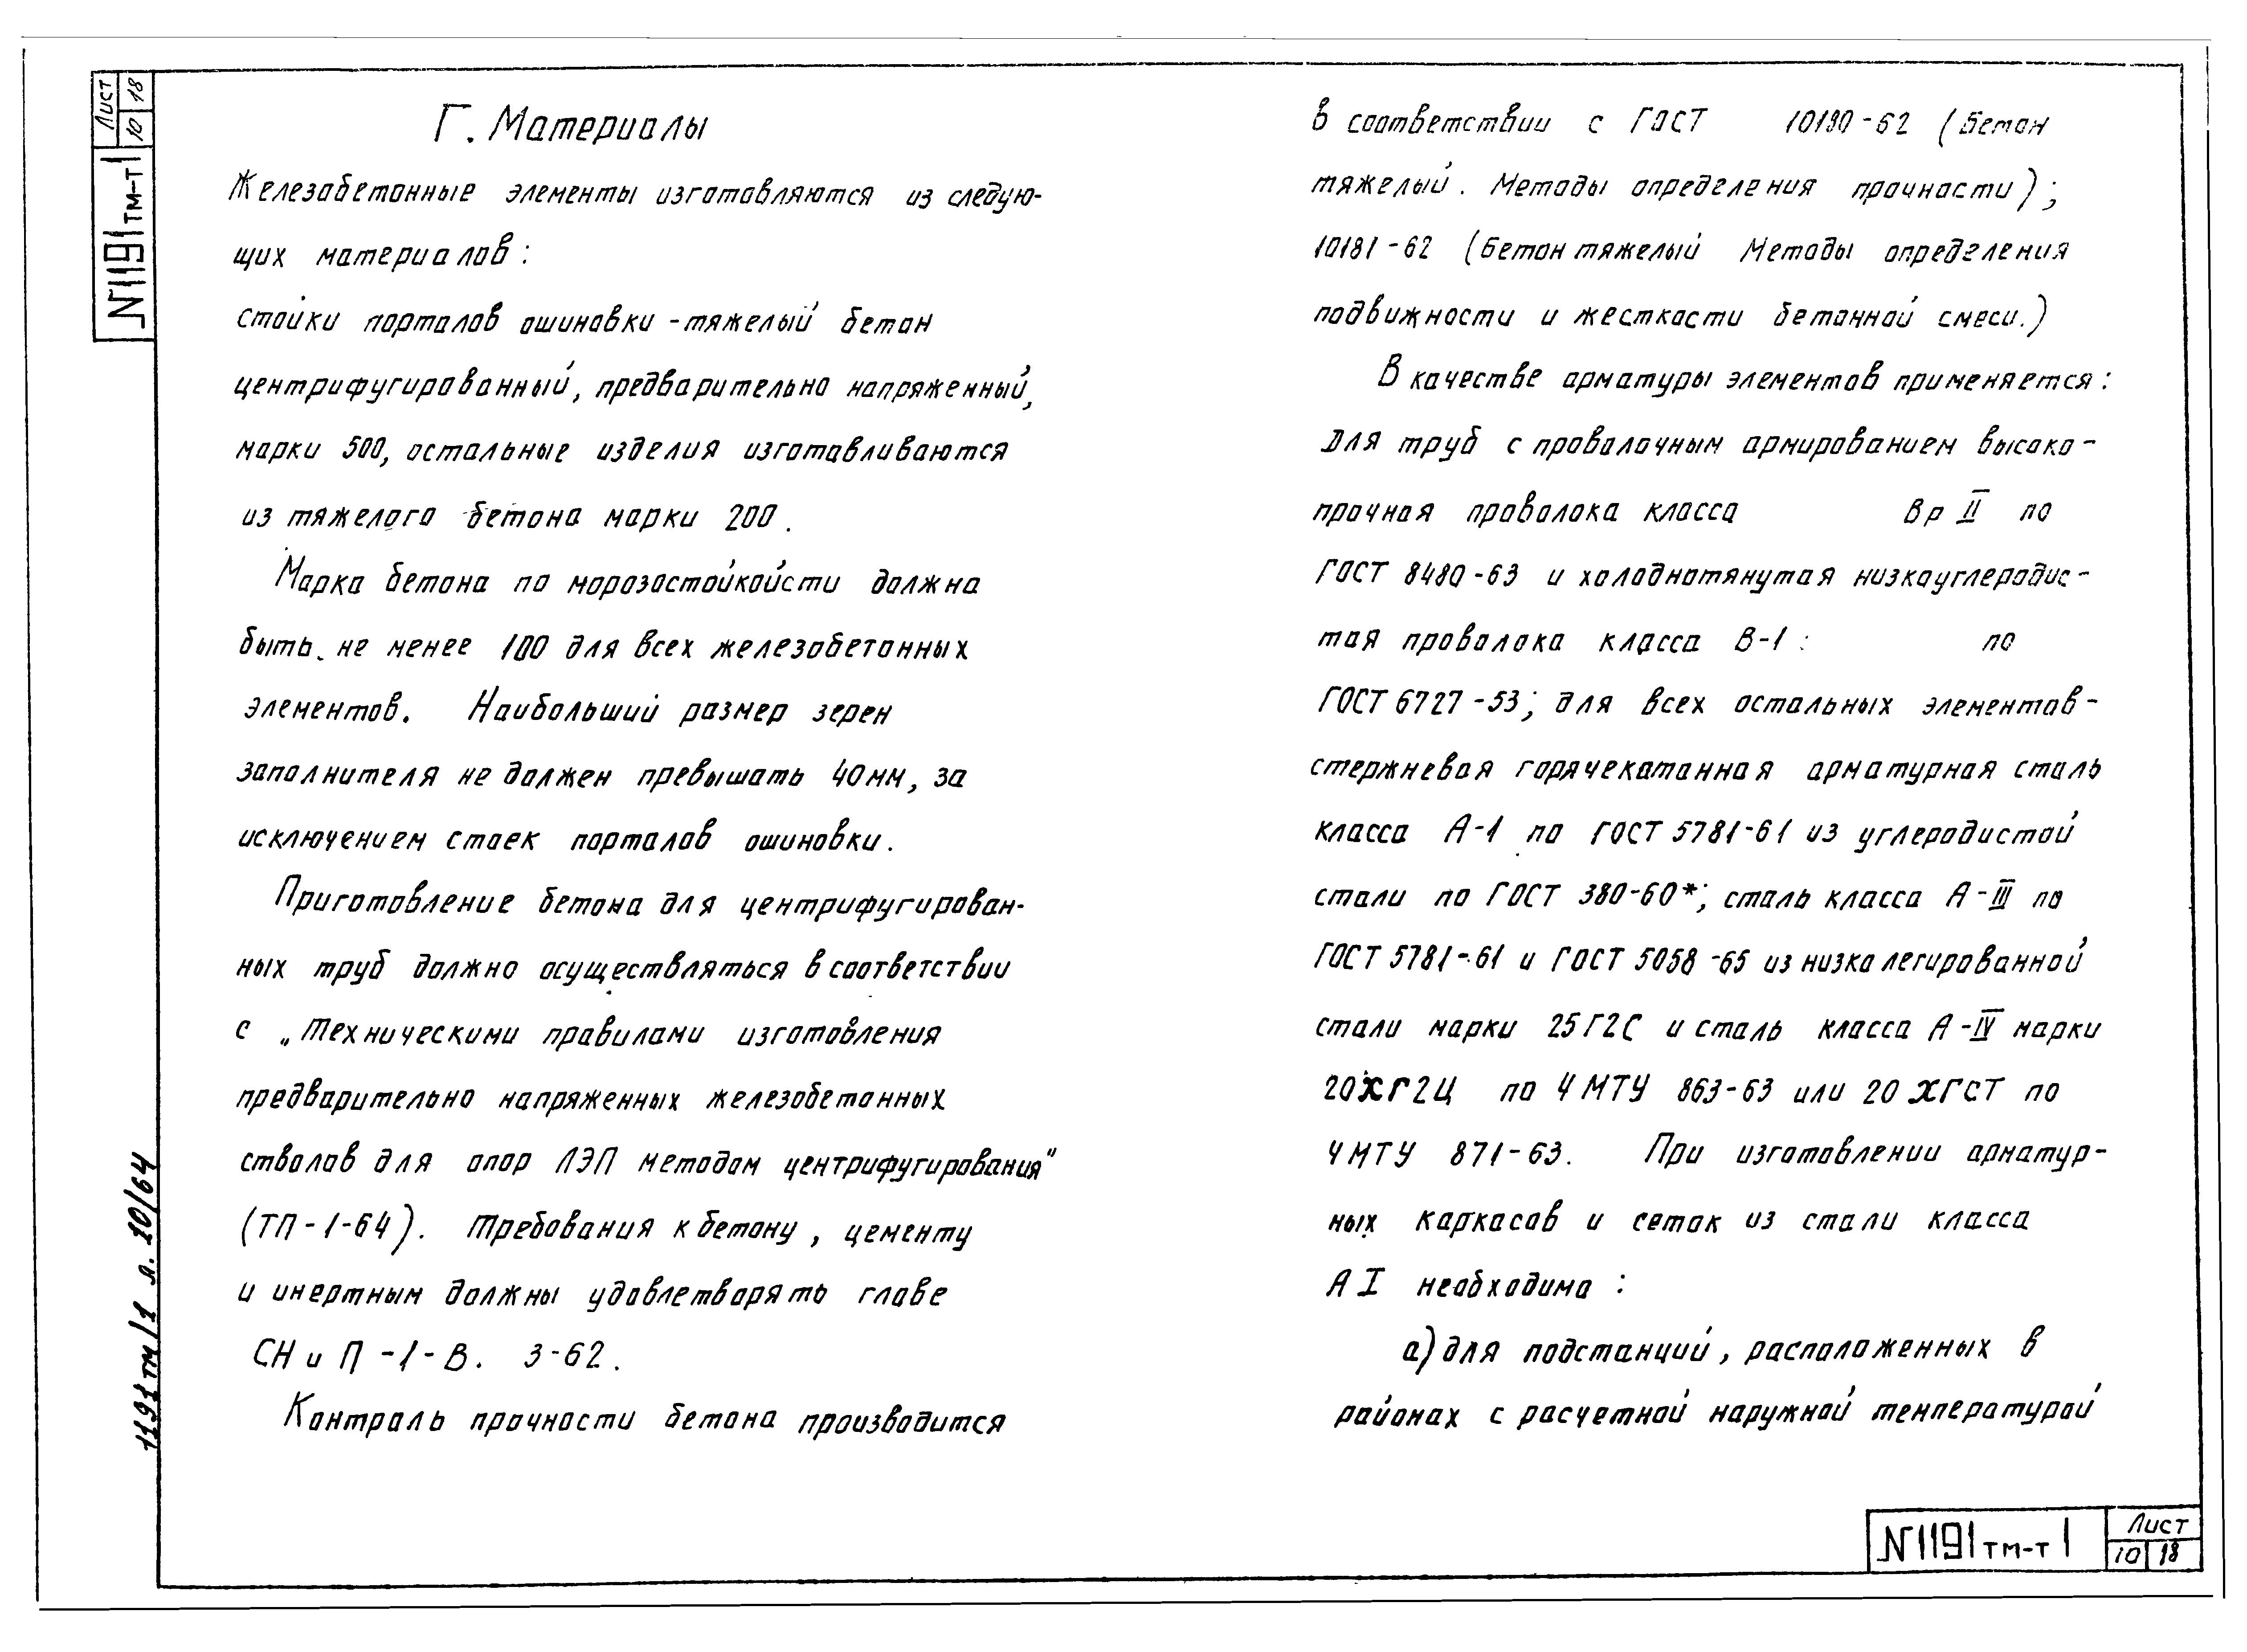 Лист
10 18
N1191тм-т1
Г. Материалы
Железобетонные элементы изготовляются из следую-
щих материалов:
стойки порталов ошиновки - тяжелый бетон
центрифугированный, предварительно напряженный,
марки 500, остальные изделия изготавливаются
из тяжелого бетона марки 200.
Марка бетона по морозостойкойсти должна
быть не менее 100 для всех железобетонных
элементов. Наибольший размер зерен
заполнителя не должен превышать 40мм, за
исключением стоек порталов ошиновки.
Приготовление бетона для центрифугирован-
ных труб должно осуществляться в соответствии
с „Техническими правилами изготовления
предварительно напряженных железобетонных
стволов для опор ЛЭП методом центрифугирования"
(ТП-1-64). Требования к бетону, цементу
и инертным должны удовлетварять главе
СНиП-1-В. 3-62.
Контроль прочности бетона производится
в соответствии с ГОСТ 10180-62 (Бетон
тяжелый. Методы определения прочности);
10181-62 (Бетон тяжелый Методы определения
подвижности и жесткости бетонной смеси.)
В качестве арматуры элементов применяется:
для труб с проволочным армированием высоко-
прочная проволока класса Вр II по
ГОСТ 8480-63 и холоднотянутая низкоуглеродис-
тая проволока класса В-1: по
ГОСТ 6727-53; для всех остальных элементов-
стержневая горячекатанная арматурная сталь
класса А-1 по ГОСТ 5781-61 из углеродистой
стали по ГОСТ 380-60*; сталь класса А-III по
ГОСТ 5781-61 и ГОСТ 5058-65 из низколегированной
стали марки 25Г2С и сталь класса А-IV марки
20ХГ2Ц по ЧМТУ 863-63 или 20ХГСТ по
ЧМТУ 871-63. При изготовлении арматур-
ных каркасов и сеток из стали класса
А I необходимо:
а) для подстанций, расположенных в
районах с расчетной наружной температурой
1191тм/1 л. 10/64
N1191тм-т1
Лист
10 18